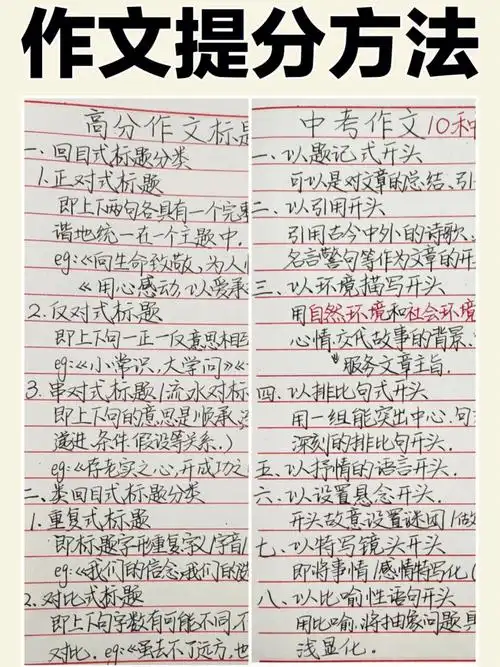 作文提分方法
高分作文标题
一、回目式标题分类
1.正对式标题
即上下两句各具有一个完
谐地统一在一个主题中.
eg:《向生命致敬,为人
《用心感动,以爱承
2.反对式标题
即上下句一正一反意思相
eg:《小常识,大学问》《
3.串对式标题/流水对标
即上下句的意思是顺承、
递进、条件、假设等关系.)
eg:《存老实之心,开成功之
二、类回目式标题分类
1.重复式标题
即标题字形重复字/字音
eg:《我们的信念,我们的
2.对比式标题
即上下句字数有可能不同,不
对比. eg:《虽去不了远方,也
中考作文10种
一、以题记式开头
可以是对文章的总结、引
二、以引用开头
引用古今中外的诗歌、
名言警句等作为文章的开
三、以环境描写开头
用自然环境和社会环境
心情,交代故事的背景、
服务文章主旨.
四、以排比句式开头
用一组能突出中心、句
深刻的排比句开头.
五、以抒情的语言开头.
六、以设置悬念开头.
开头故意设置谜团/做
七、以特写镜头开头
即将事情/感情特写化(
八、以比喻性语句开头
用比喻,将抽象问题具
浅显化.